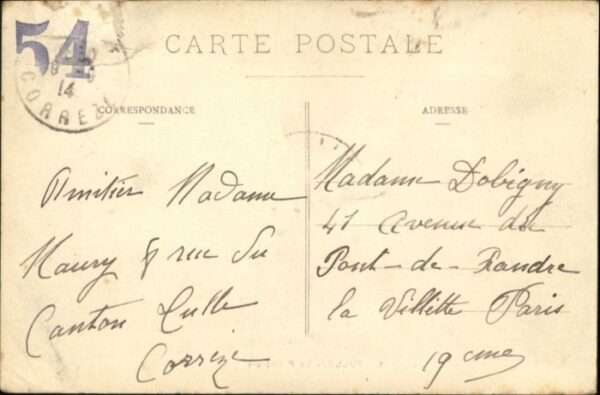 54
CARTE POSTALE
14
CORREZE
CORRESPONDANCE
ADRESSE
Amitier Madame
Maury 8 rue du
Canton Tulle
Corrèze
Madame Dobigny
41 Avenue du
Pont-de-Flandre
la Villette Paris
19eme